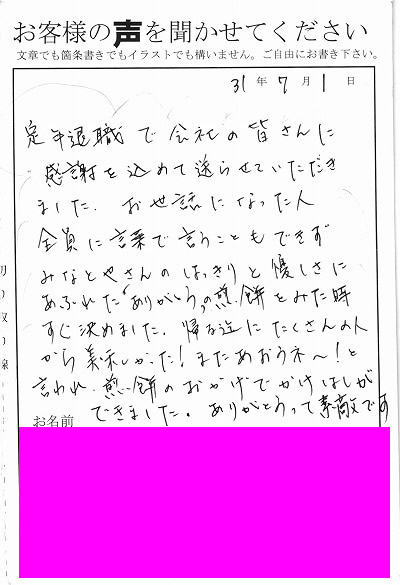 お客様の声を聞かせてください
文章でも箇条書きでもイラストでも構いません。ご自由にお書き下さい。
31年7月1日
定年退職で会社の皆さんに
感謝を込めて送らせていただき
ました。お世話になった人
全員に言葉で言うこともできず
みなとやさんのはっきりと優しさに
あふれた"ありがとう"の煎餅をみた時
すぐ決めました。帰る迄にたくさんの人
から美味しかった!またあおうネ〜!と
言われ、煎餅のおかげでかけはしが
できました。ありがとうって素敵です
お名前
切り取り線